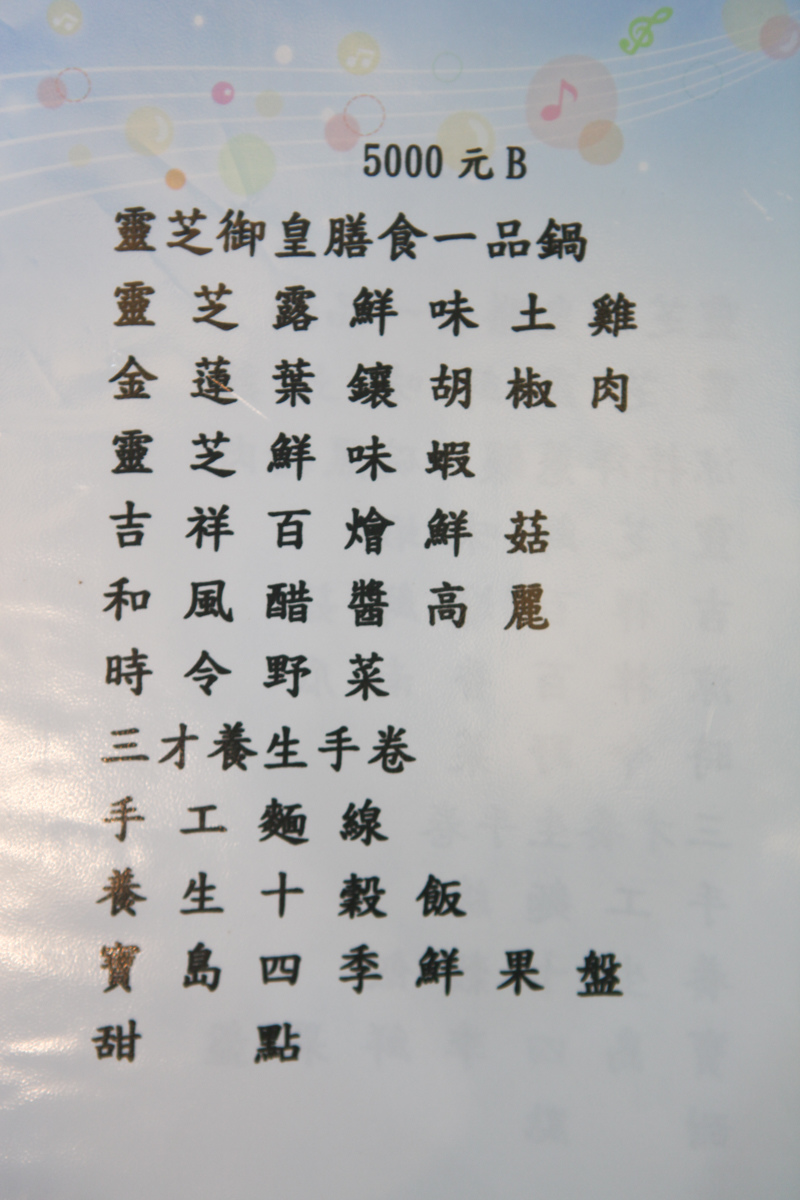 5000 元 B
靈芝御皇膳食一品鍋
靈芝露鮮味土雞
金蓮葉鑲胡椒肉
靈芝鮮味蝦
吉祥百燴鮮菇
和風醋醬高麗
時令野菜
三才養生手卷
手工麵線
養生十穀飯
寶島四季鮮果盤
甜 點